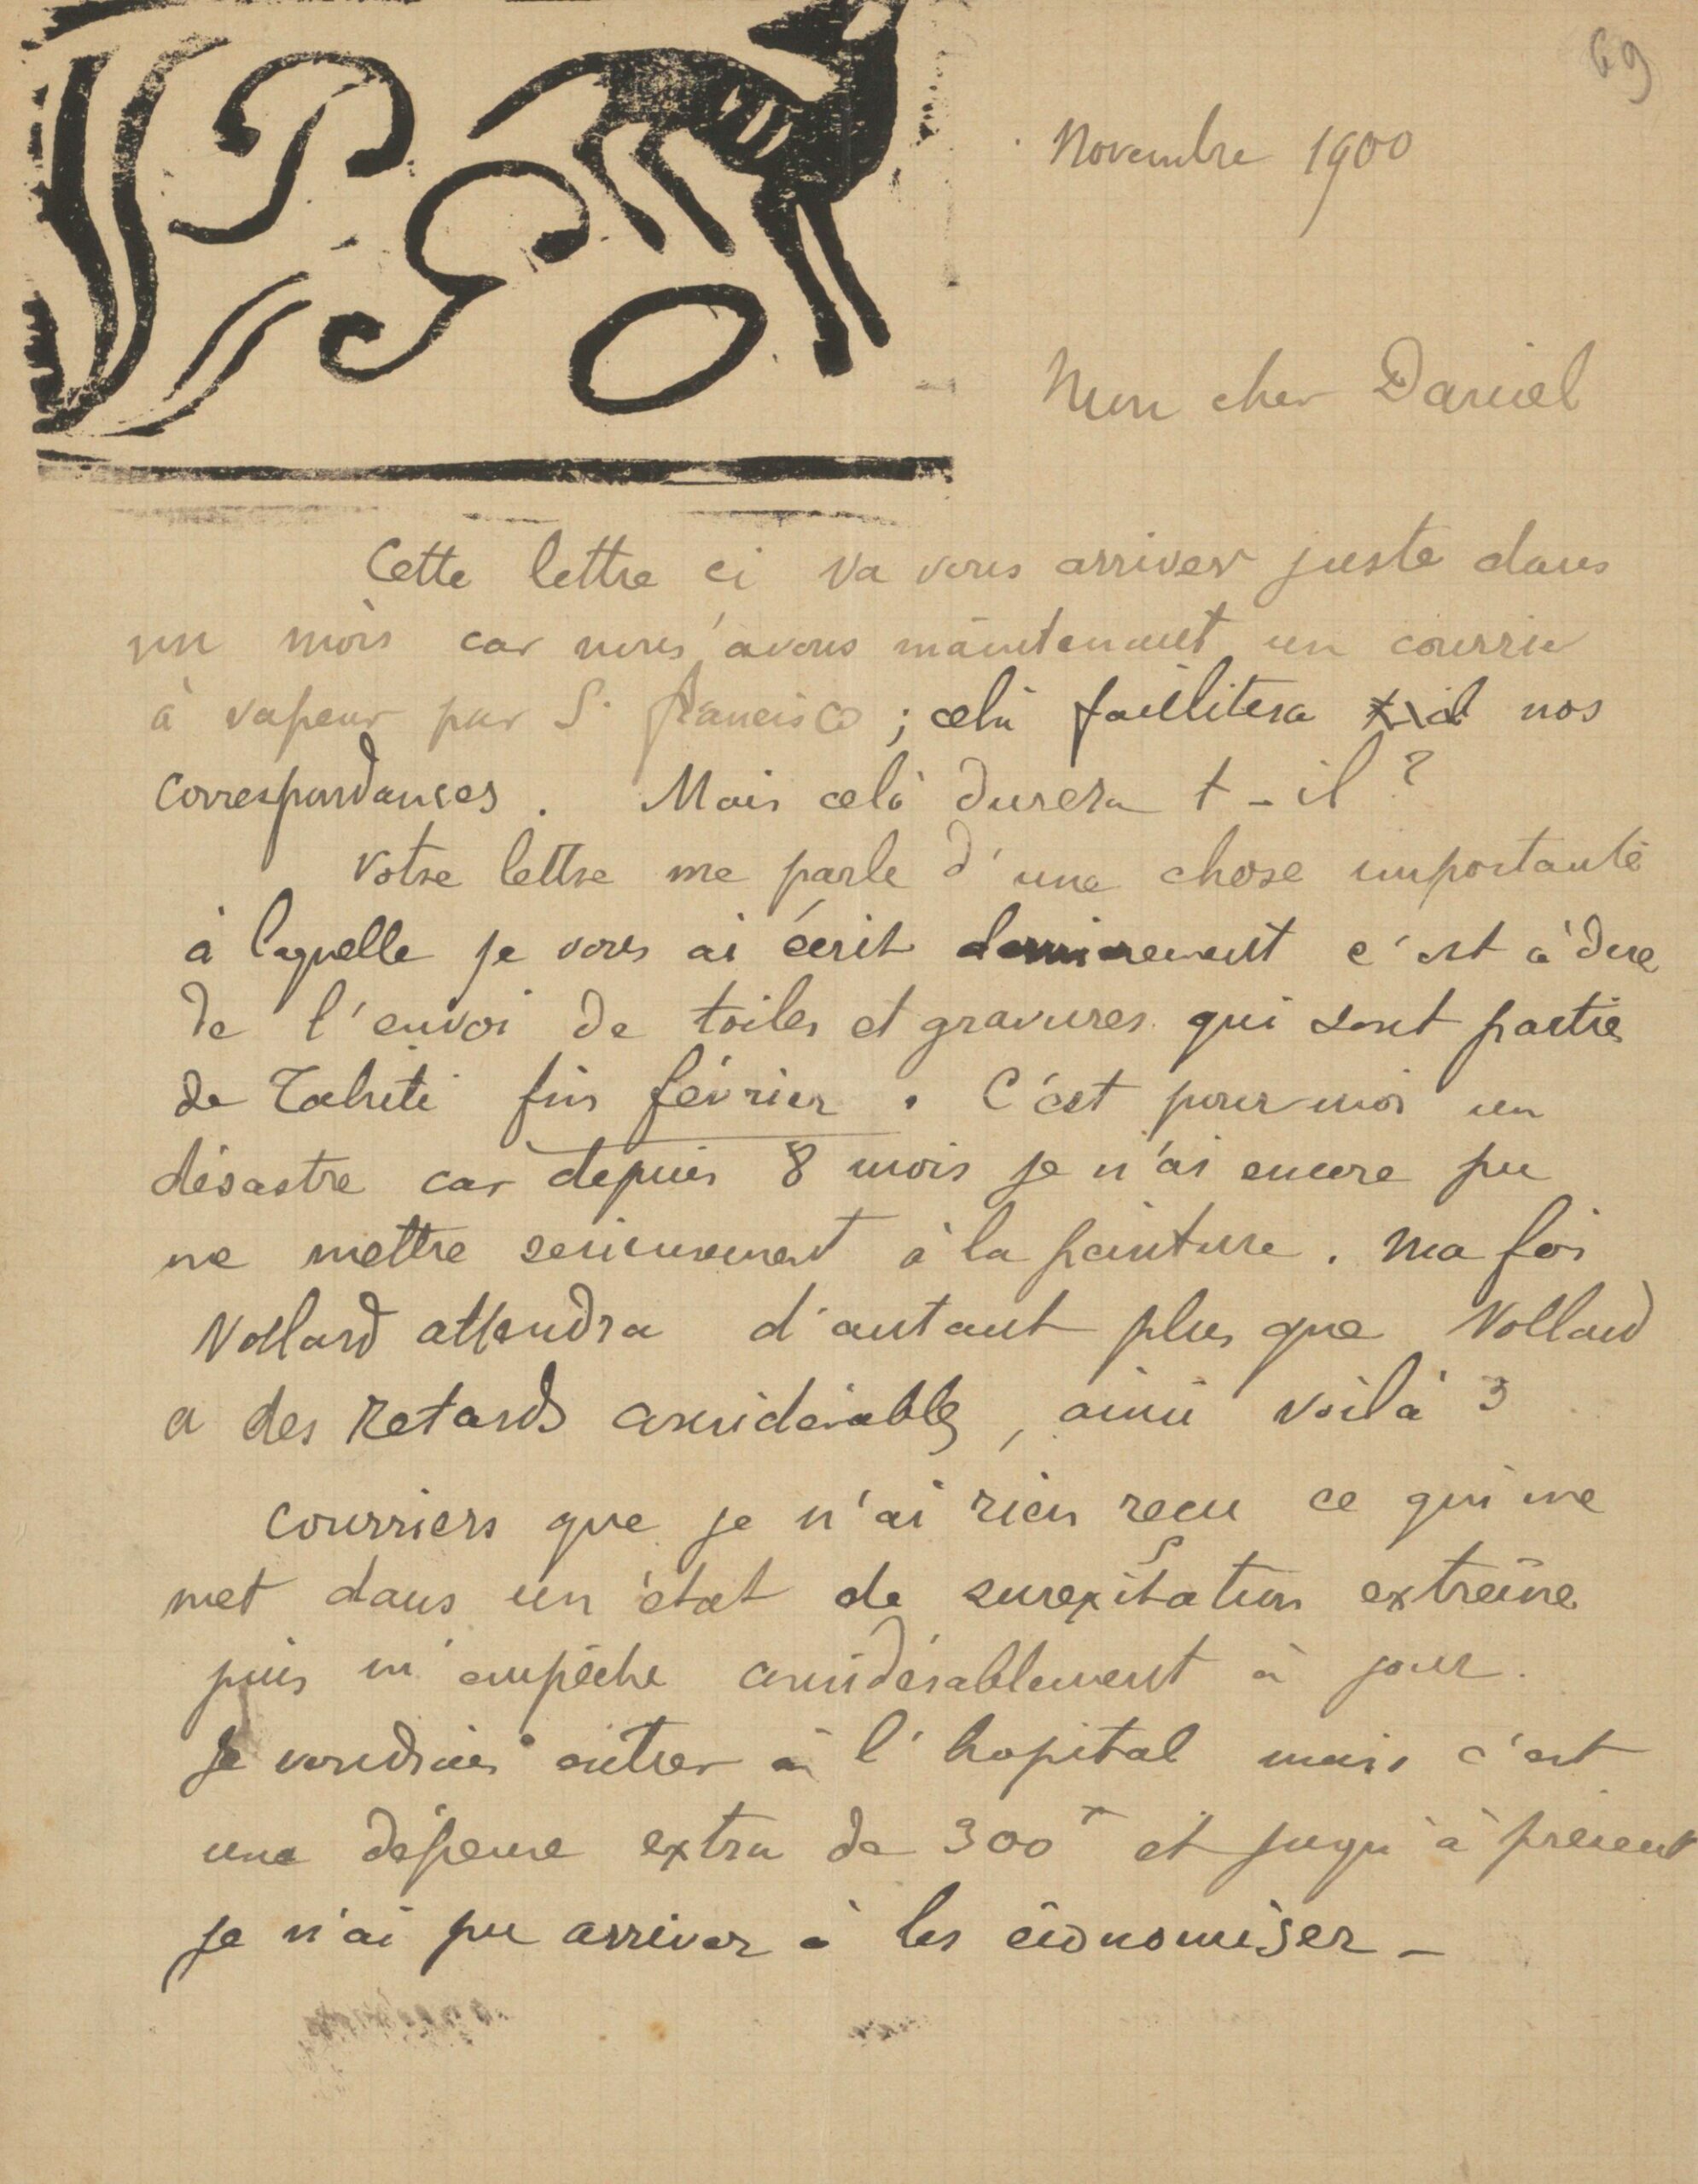 PGO
69
Novembre 1900
Mon cher Daniel
Cette lettre ci va vous arriver juste dans
un mois car nous avons maintenant un courrier
à vapeur par S. francisco ; celà facilitera nos
correspondances. Mais celà durera t-il ?
Votre lettre me parle d'une chose importante
à laquelle je vous ai écrit dernierement c'est à dire
de l'envoi de toiles et gravures qui sont parties
de Tahiti fin février. C'est pour moi un
désastre car depuis 8 mois je n'ai encore pu
me mettre serieusement à la peinture. Ma foi
Vollard attendra d'autant plus que Vollard
a des retards considérables, ainsi voilà 3
courriers que je n'ai rien reçu ce qui me
met dans un état de surexitation extrème
puis m'empêche considérablement à jour.
Je voudrais entrer à l'hopital mais c'est
une dépense extra de 300f et jusqu'à présent
je n'ai pu arriver à les économiser_